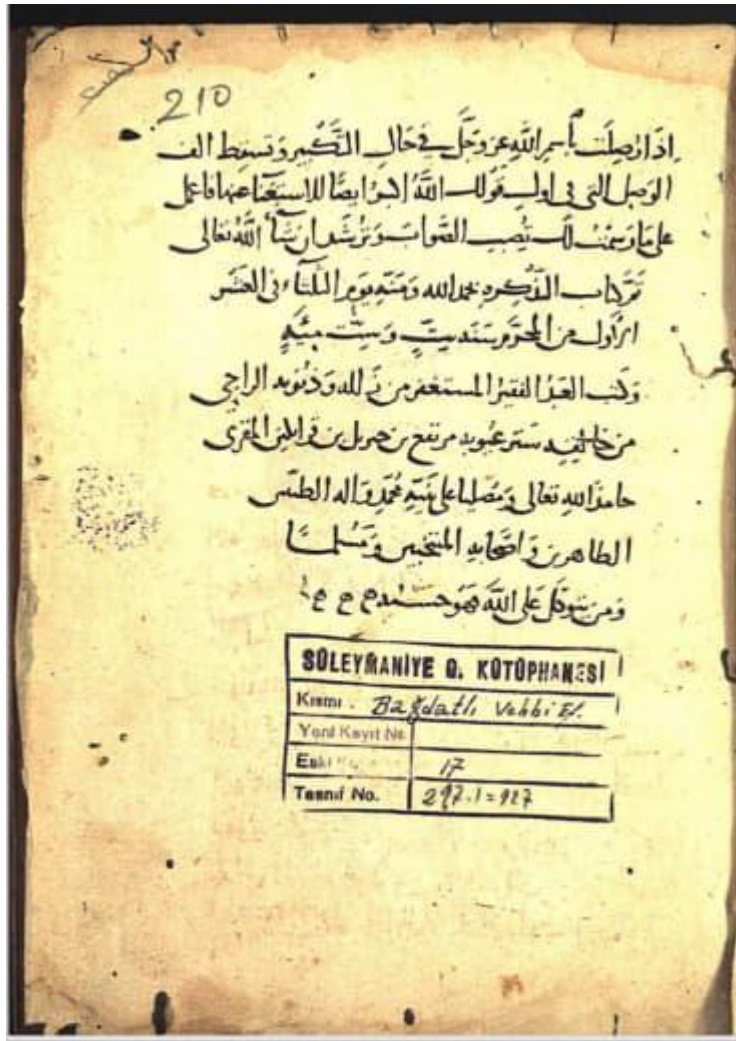 210
إذا وصلت باسم الله عز وجل في حال التكبير وتسقط الف
الوصل التي في اول قولك الله اكبر ايضا للاستغنا عنها فاعمل
على ما رسمت لك تصب الصواب وترشد ان شا الله تعالى
تم كتاب التذكرة بحمد الله ومنه يوم الثلثاء في العشر
الأول من المحرم سنة ست وست مئة
وكتب العبد الفقير المستغفر من زلله وذنوبه الراجي
من ستر عيوبه مرتفع بن جبريل بن المقرى
حامدا لله تعالى ومصليا على نبيه محمد واله الطيبين
الطاهرين واصحابه المنتجبين ومسلما
ومن يتوكل على الله فهو حسبه
SÜLEYMANİYE G. KÜTÜPHANESİ
Kısmı . Bağdatlı Vehbi Ef.
Yeni Kayıt No.
Eski 17
Tasnif No. 297.1=927